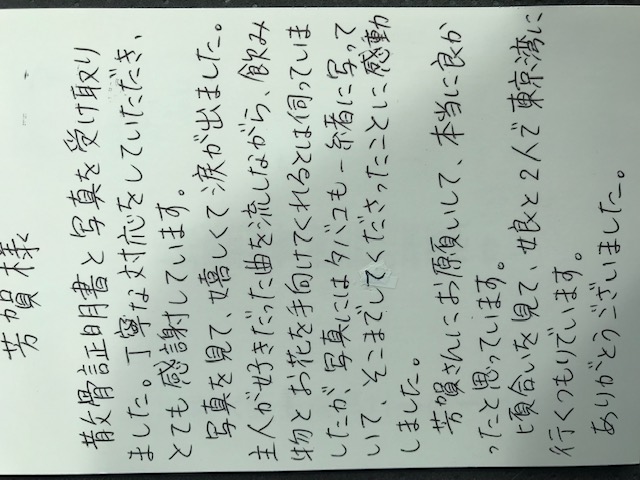 芳賀様
散骨証明書と写真を受け取り
ました。丁寧な対応をしていただき、
とても感謝しています。
写真を見て、嬉しくて涙が出ました。
主人が好きだった曲を流しながら、飲み
物とお花を手向けてくれるとは伺っていま
したが、写真にはタバコも一緒に写って
いて、そこまでしてくださったことに感動
しました。
芳賀さんにお願いして、本当に良か
ったと思っています。
頃合いを見て、娘と2人で東京湾に
行くつもりでいます。
ありがとうございました。